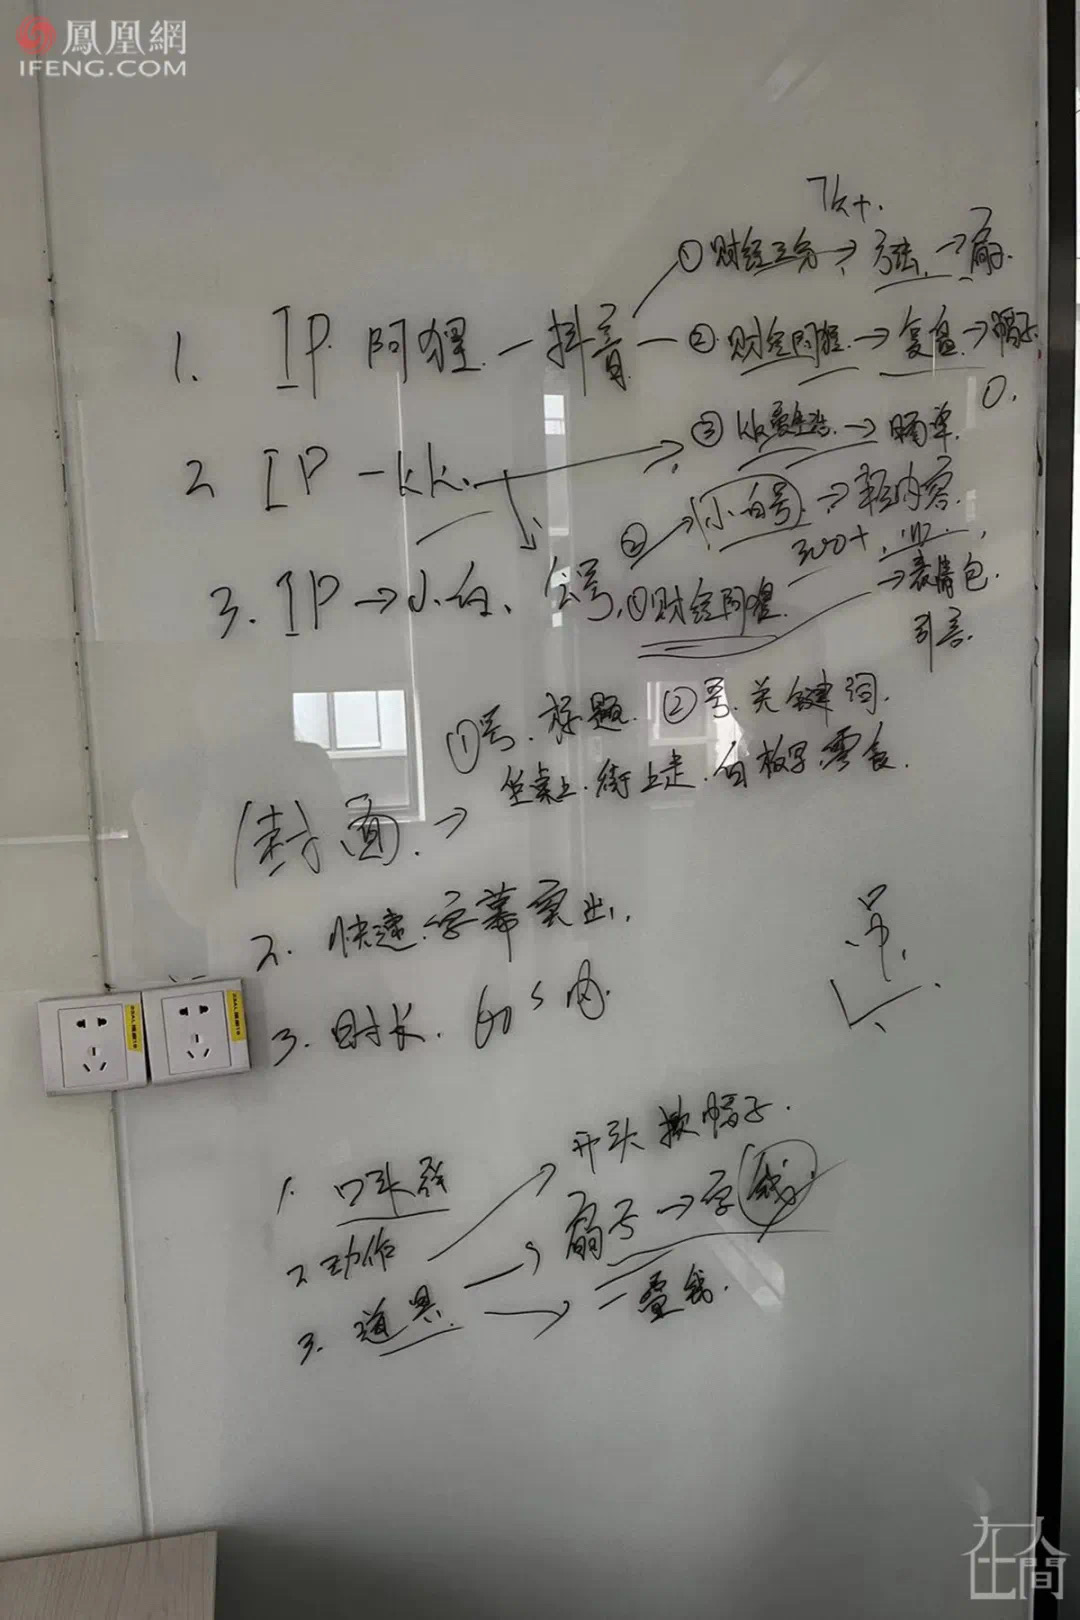 鳳凰網
IFENG.COM
7K+.
①财经三分→方法.→扇.
1. IP 阿狸—抖音—②财经阿狸.→复盘→帽子.
2 IP-kk. ③kk爱生活.→晒单.
②→小白号→轻内容.
300+
3.IP→小白、公号,①财经阿狸. →表情包.
引言
①号.标题.②号.关键词.
坐桌上.街上走.白板写.零食.
封面.→
2.快速.字幕突出.
3.时长.60s内.
吊.
1.口头禅
2动作→开头掀帽子.
3.道具.→扇子→字钱.
→一叠钱.
在人間